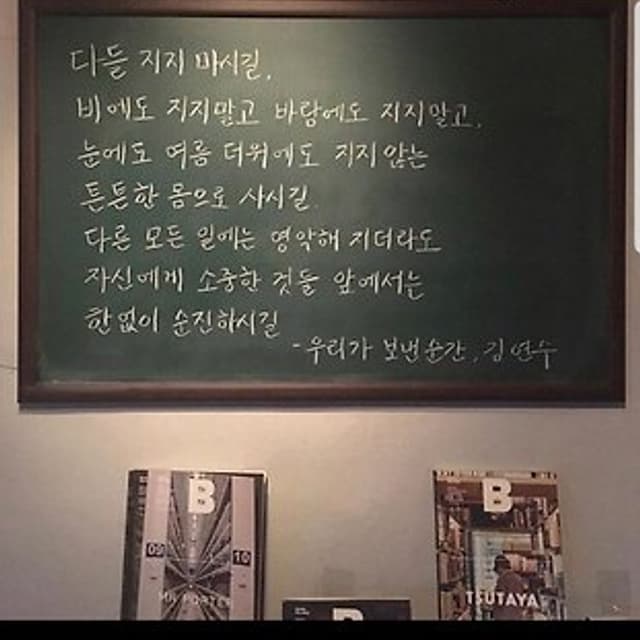 다들 지지 마시길.
비에도 지지말고 바람에도 지지말고.
눈에도 여름 더위에도 지지 않는
튼튼한 몸으로 사시길.
다른 모든 일에는 영악해 지더라도
자신에게 소중한 것들 앞에서는
한없이 순진하시길
- 우리가 보낸 순간, 김연수
B
09
10
MR PORTER
B
TSUTAYA
B